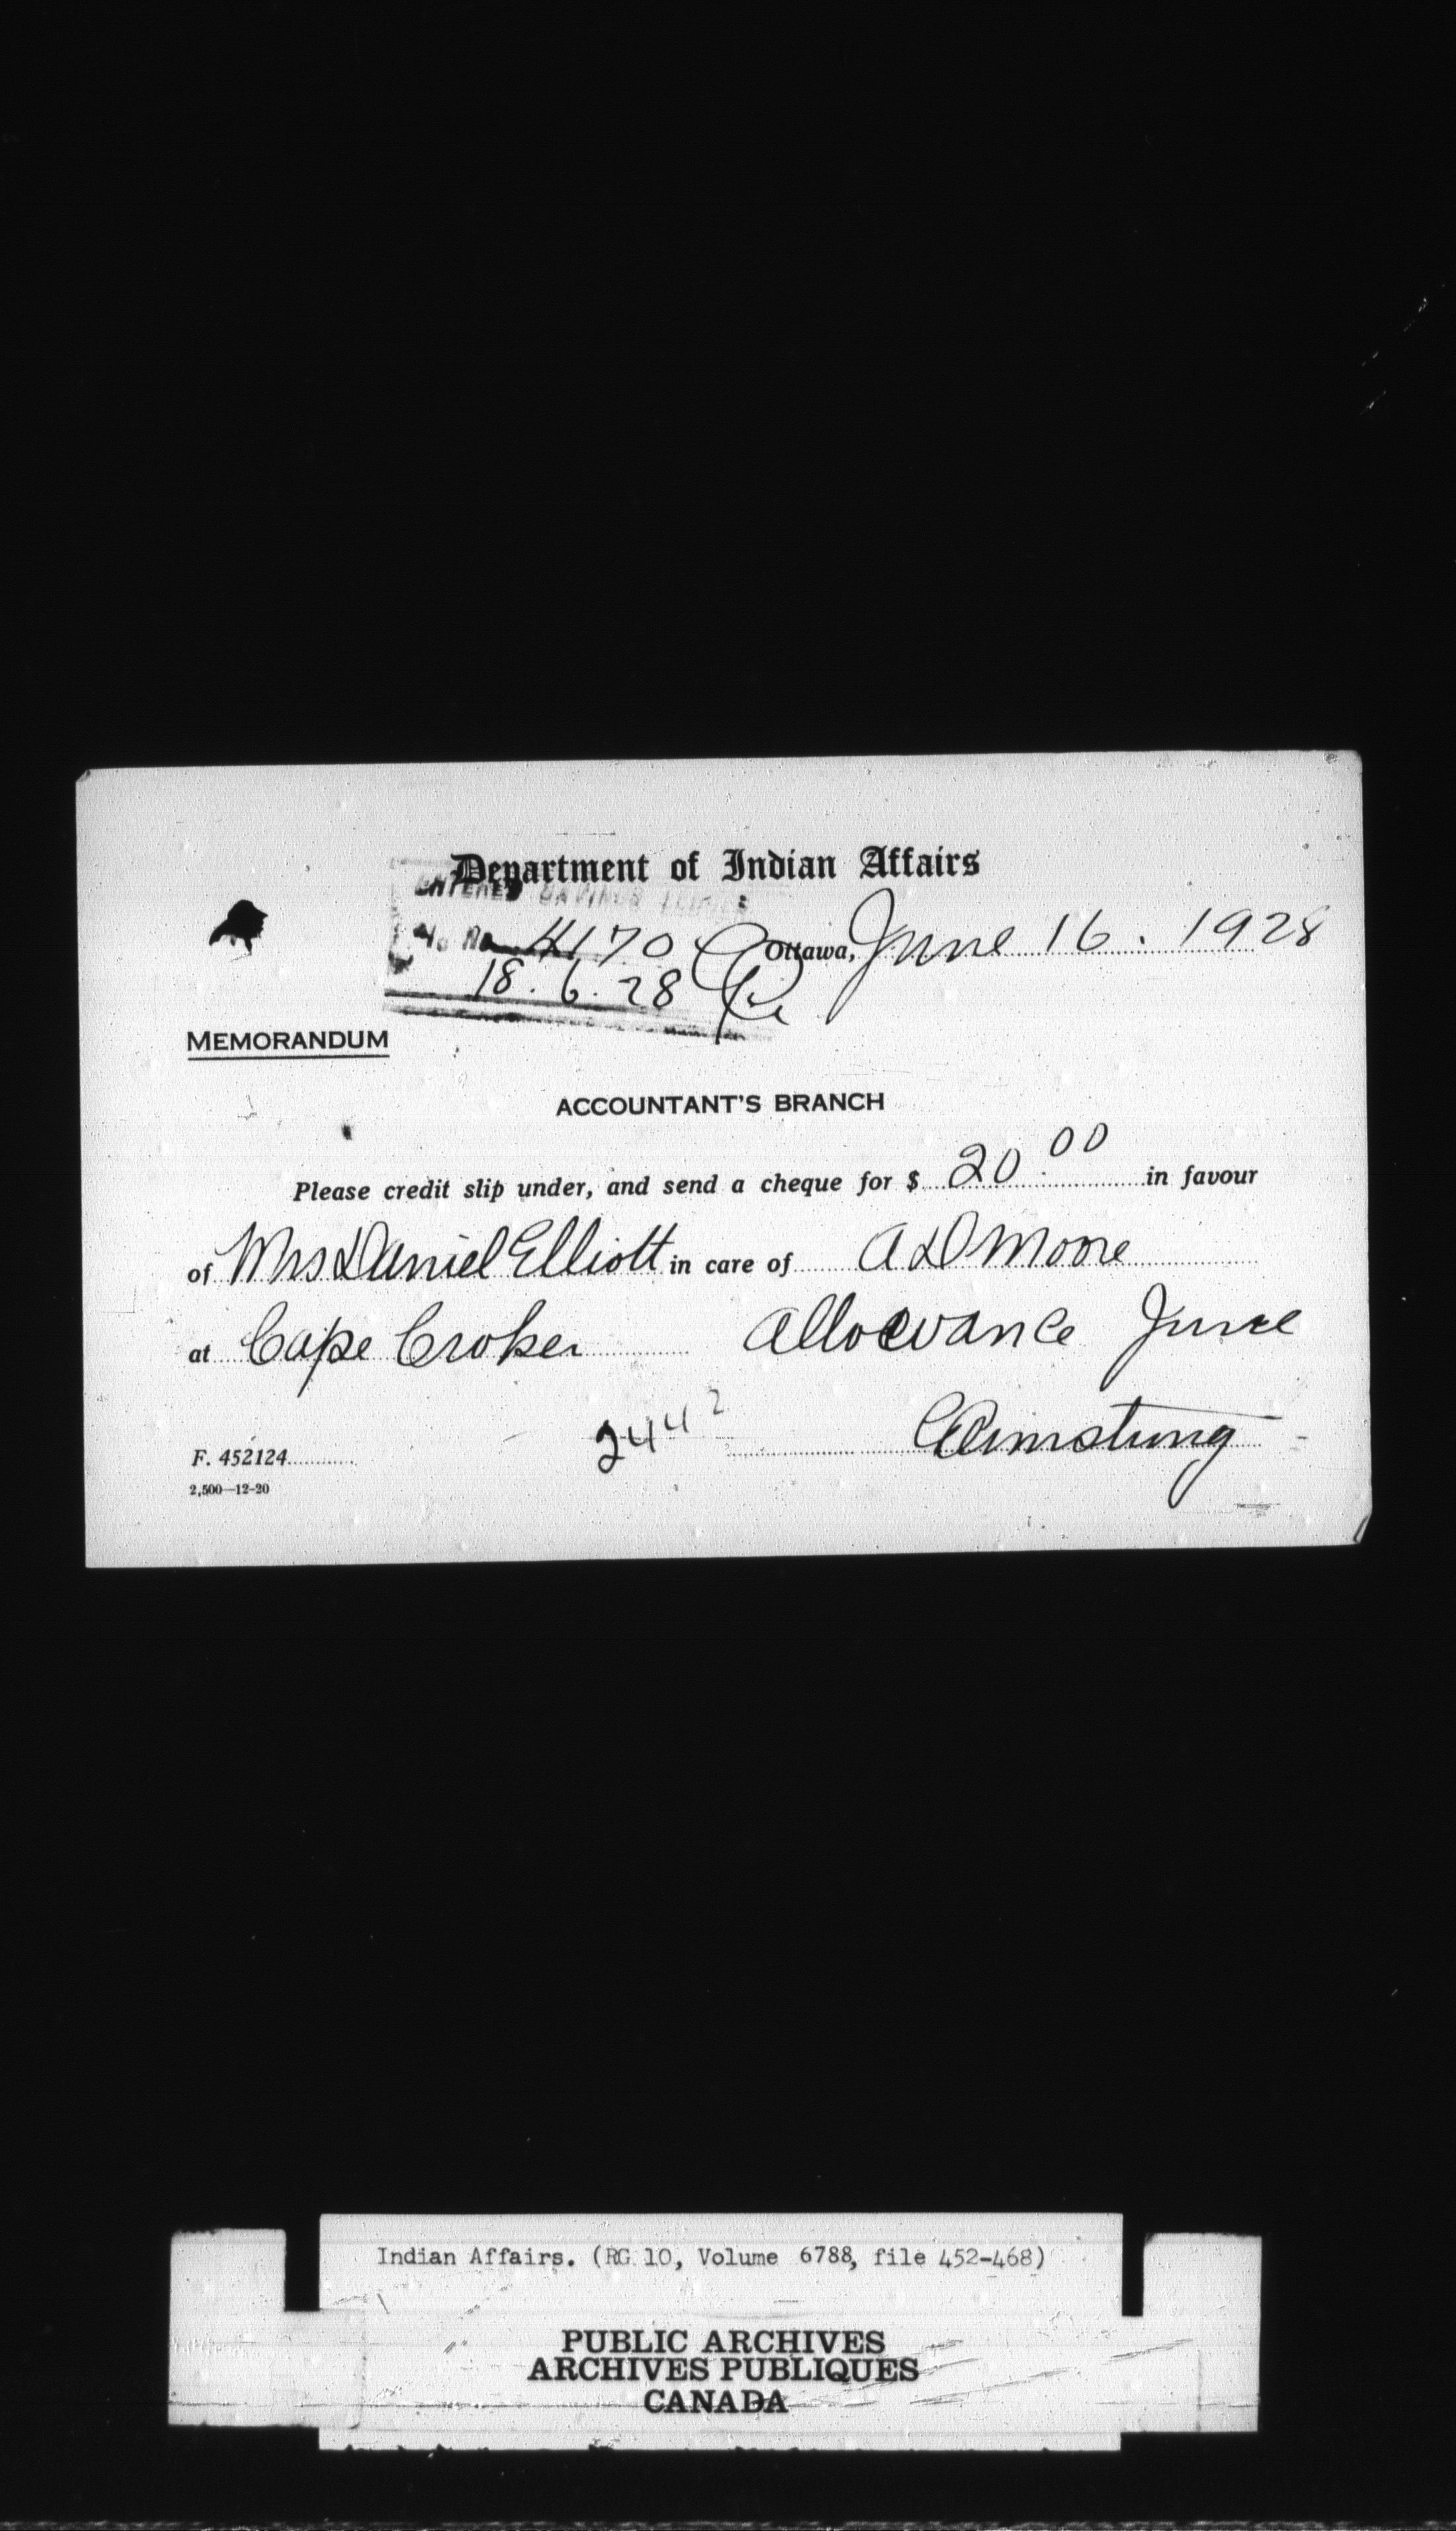 Department of Indian Affairs
ENTERED SAVINGS LEDGER
No. 4170
Ottawa, June 16. 1928
18. 6. 28
MEMORANDUM
ACCOUNTANT'S BRANCH
Please credit slip under, and send a cheque for $ 20.00 in favour
of Mrs Daniel Elliott in care of A D Moore
at Cape Croker Allowance June
2442
F. 452124
2,500—12-20
Indian Affairs. (RG 10, Volume 6788, file 452-468)
PUBLIC ARCHIVES
ARCHIVES PUBLIQUES
CANADA